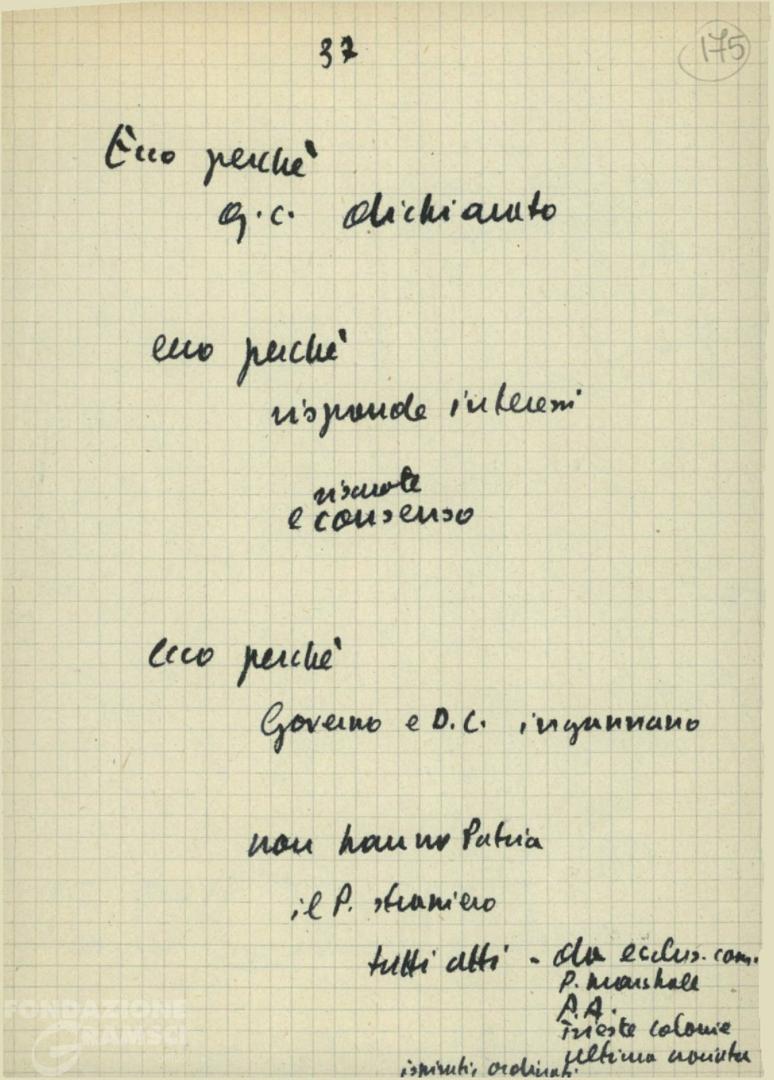 37
175
Ecco perchè
g.c. dichiarato
ecco perchè
risponde interessi
riscuote
e consenso
ecco perchè
Governo e D.C. ingannano
non hanno Patria
il P. straniero
tutti atti - da esclus. com.
P. Marshall
P.A.
Trieste colonie
ultima
ispirati, ordinati
FONDAZIONE
GRAMSCI